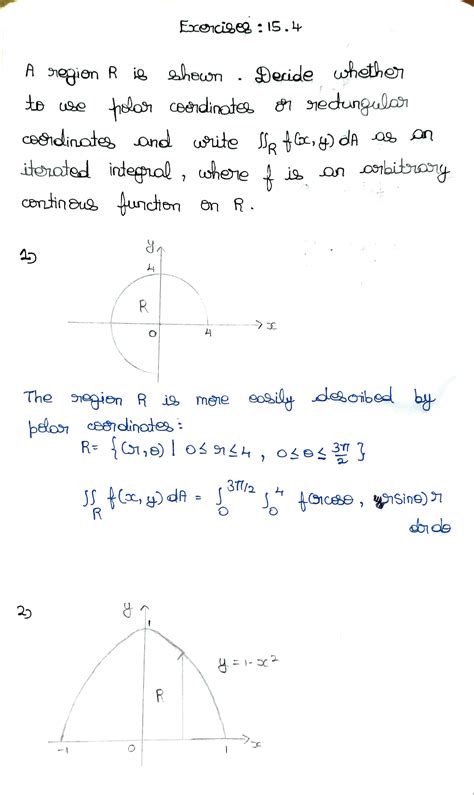 Exercises : 15.4
A region R is shown. Decide whether
to use polar coordinates or rectungular
coordinates and write ∬_R f(x,y) dA as an
iterated integral, where f is an arbitrary
continous function on R.
1)
y
4
R
0
4
x
The region R is more easily described by
polar coordinates:
R = {(r,θ) | 0≤r≤4 , 0≤θ≤ 3π/2 }
∬_R f(x,y) dA = ∫_0^{3π/2} ∫_0^4 f(rcosθ , rsinθ) r
drdθ
2)
y
1
y = 1-x²
R
-1
0
1
x